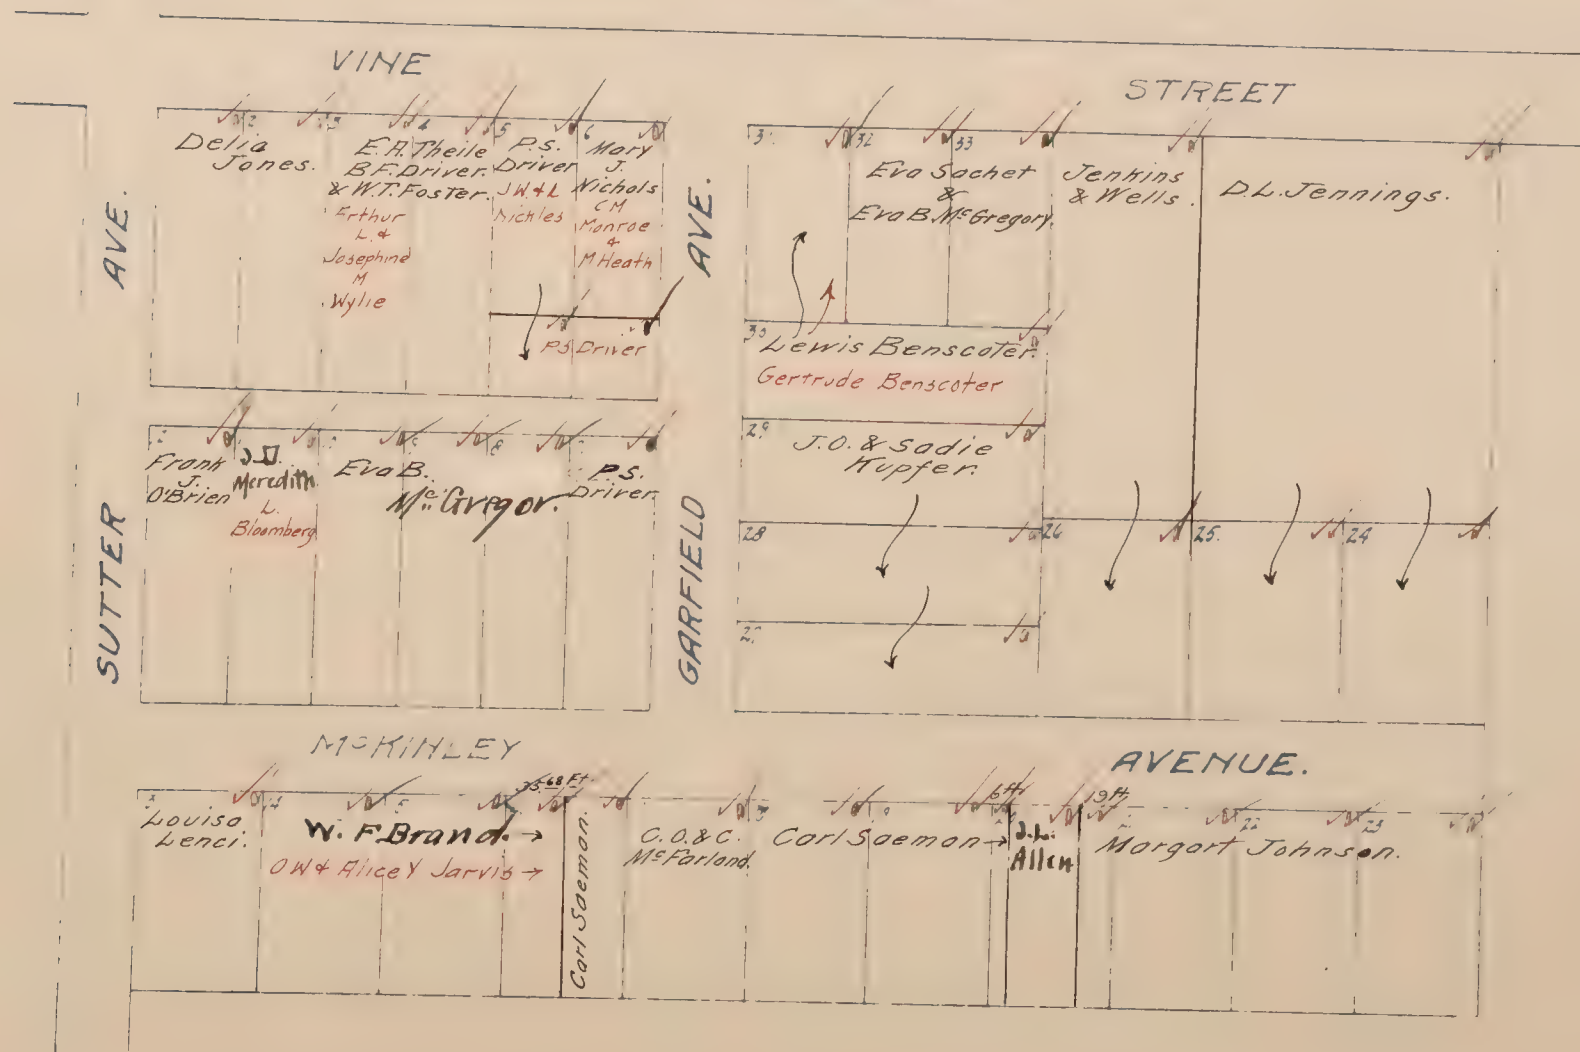 VINE
STREET
AVE.
SUTTER
AVE.
GARFIELD
McKINLEY
AVENUE.
2
3
4
5
6
Delia
Jones.
E.A. Theile
B.F. Driver.
& W.T. Foster.
Erthur
L. &
Josephine
M
Wylie
P.S.
Driver
J W & L
Nickles
Mary
J.
Nichols
C M
Monroe
&
M Heath
P S Driver
31
32
33
Eva Sachet
&
Eva B. McGregory.
Jenkins
& Wells.
D.L. Jennings.
30
Lewis Benscoter.
Gertrude Benscoter
29
J.O. & Sadie
Kupfer.
28
26
25.
24
27.
Frank
J.
O'Brien
Meredith
L.
Bloomberg
8
Eva B.
Mc. Gregor.
P.S.
Driver.
35.68 Ft.
6 ft
19 ft,
22
23
Louisa
Lenci.
W. F. Brand. →
O W & Alice Y Jarvis →
Carl Saemon.
C.O. & C.
McFarland.
Carl Saemon →
J.L.
Allen
Margart Johnson.